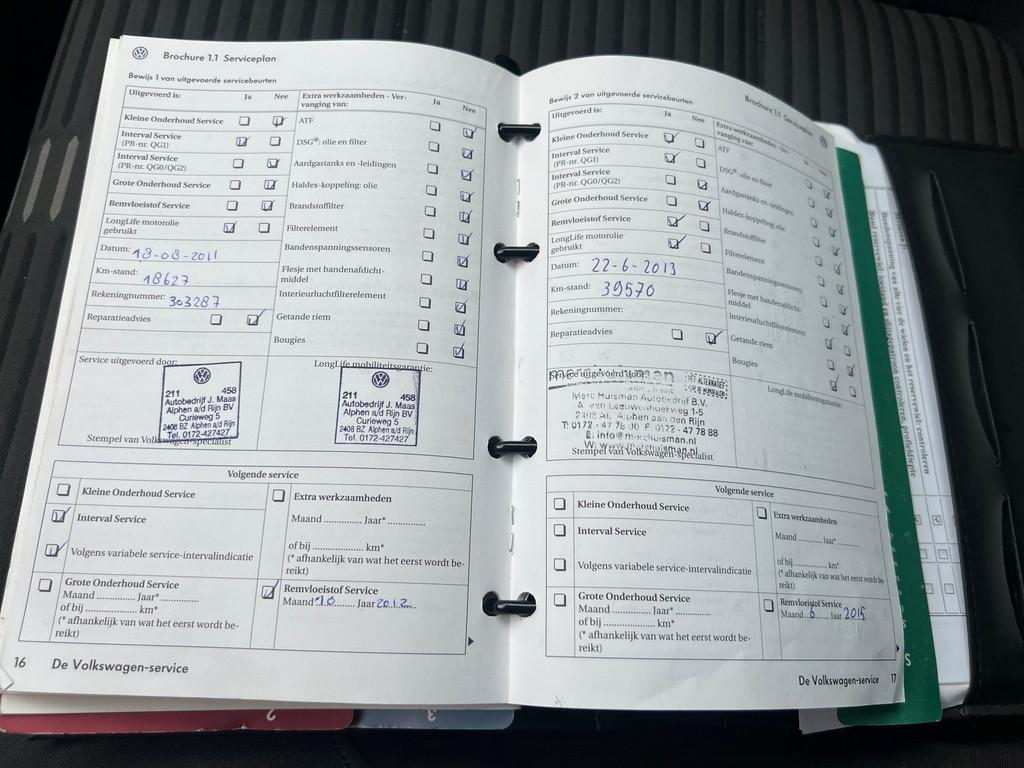 Brochure 1.1 Serviceplan
Bewijs 1 van uitgevoerde servicebeurten
Uitgevoerd is: Ja Nee
Kleine Onderhoud Service
Interval Service
(PR-nr. QG1)
Interval Service
(PR-nr. QG0/QG2)
Grote Onderhoud Service
Remvloeistof Service
LongLife motorolie
gebruikt
Datum: 18-08-2011
Km-stand: 18627
Rekeningnummer: 303287
Reparatieadvies
Extra werkzaamheden - Ver-
vanging van: Ja Nee
ATF
DSG®: olie en filter
Aardgastanks en -leidingen
Haldex-koppeling: olie
Brandstoffilter
Filterelement
Bandenspanningssensoren
Flesje met bandenafdicht-
middel
Interieurluchtfilterelement
Getande riem
Bougies
Service uitgevoerd door:
211 458
Autobedrijf J. Maas
Alphen a/d Rijn BV
Curieweg 5
2408 BZ Alphen a/d Rijn
Tel. 0172-427427
Stempel van Volkswagen-specialist
LongLife mobiliteitsgarantie:
211 458
Autobedrijf J. Maas
Alphen a/d Rijn BV
Curieweg 5
2408 BZ Alphen a/d Rijn
Tel. 0172-427427
Volgende service
Kleine Onderhoud Service
Interval Service
Volgens variabele service-intervalindicatie
Grote Onderhoud Service
Maand .............. Jaar* ..............
of bij ..................... km*
(* afhankelijk van wat het eerst wordt be-
reikt)
Extra werkzaamheden
Maand .............. Jaar* ..............
of bij ..................... km*
(* afhankelijk van wat het eerst wordt be-
reikt)
Remvloeistof Service
Maand 10 Jaar 2012
16 De Volkswagen-service
Brochure 1.1 Serviceplan
Bewijs 2 van uitgevoerde servicebeurten
Uitgevoerd is: Ja Nee
Kleine Onderhoud Service
Interval Service
(PR-nr. QG1)
Interval Service
(PR-nr. QG0/QG2)
Grote Onderhoud Service
Remvloeistof Service
LongLife motorolie
gebruikt
Datum: 22-6-2013
Km-stand: 39570
Rekeningnummer:
Reparatieadvies
Extra werkzaamheden - Ver-
vanging van: Ja
ATF
DSG®: olie en filter
Aardgastanks en -leidingen
Haldex-koppeling: olie
Brandstoffilter
Filterelement
Bandenspanningssensoren
Flesje met bandenafdicht-
middel
Interieurluchtfilterelement
Getande riem
Bougies
Service uitgevoerd door:
Marc Huisman Autobedrijf B.V.
A. van Leeuwenhoekweg 1-5
Alphen aan den Rijn
F: 0172 - 47 78 88
Stempel van Volkswagen-specialist
LongLife mobiliteitsgarantie:
Volgende service
Kleine Onderhoud Service
Interval Service
Volgens variabele service-intervalindicatie
Grote Onderhoud Service
Maand .............. Jaar* ..............
of bij ..................... km*
(* afhankelijk van wat het eerst wordt be-
reikt)
Extra werkzaamheden
Maand .......... Jaar* ..........
of bij ................ km*
(* afhankelijk van wat het eerst wordt be-
reikt)
Remvloeistof Service
Maand 6 Jaar 2015
De Volkswagen-service 17
2
3
S